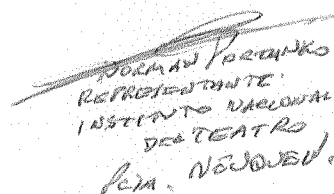 NORMAN PORTUNKO
REPRESENTANTE
INSTITUTO NACIONAL
DEL TEATRO
PCIA. NEUQUEN.